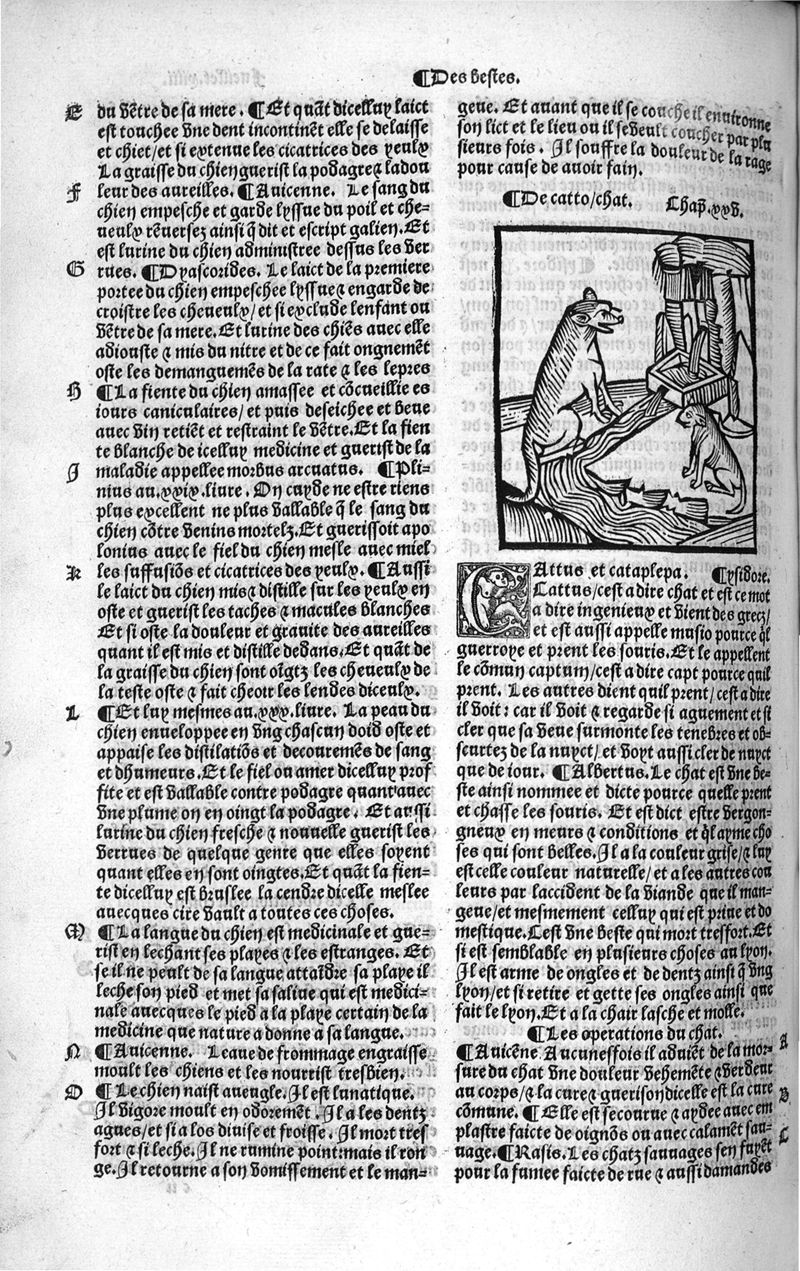 ¶Des bestes.
E du vẽtre de sa mere. ¶Et quãt dicelluy laict
est touchee vne dent incontinẽt elle se delaisse
et chiet/et si extenue les cicatrices des yeulx
La graisse du chien guerist la podagre⁊ la dou
F leur des aureilles. ¶Auicenne. Le sang du
chien empesche et garde lyssue du poil et che-
ueulx rẽuersez ainsi q̃ dit et escript galien. Et
est lurine du chien administree dessus les ver
G rues. ¶Dyascorides. Le laict de la premiere
portee du chien empeschee lyssue ⁊ engarde de
croistre les cheueulx/et si exclude lenfant ou
vẽtre de sa mere. Et lurine des chiẽs auec elle
adiouste ⁊ mis du nitre et de ce fait ongnemẽt
oste les demanguemẽs de la rate ⁊ les lepres
H ¶La fiente du chien amassee et cõcueillie es
iours caniculaires/et puis deseichee et beue
auec vin retiẽt et restraint le vẽtre. Et la fien
te blanche de icelluy medicine et guerist de la
I maladie appellee morbus arcuatus. ¶Pli-
nius au.xxix.liure. On cuyde ne estre riens
plus excellent ne plus vallable q̃ le sang du
chien cõtre venins mortelz. Et guerissoit apo
lonius auec le fiel du chien mesle auec miel
K les suffusiõs et cicatrices des yeulx. ¶Aussi
le laict du chien mis⁊ distille sur les yeulx en
oste et guerist les taches ⁊ macules blanches
Et si oste la douleur et grauite des aureilles
quant il est mis et distille dedans. Et quãt de
la graisse du chien sont oĩgtz les cheueulx de
la teste oste ⁊ fait cheoir les lendes diceulx.
L ¶Et luy mesmes au.xxx.liure. La peau du
chien enueloppee en vng chascun doid oste et
appaise les distilatiõs et decouremẽs de sang
et dhumeurs. Et le fiel ou amer dicelluy prof
fite et est vallable contre podagre quant auec
vne plume on en oingt la podagre. Et aussi
lurine du chien fresche ⁊ nouuelle guerist les
verrues de quelque genre que elles soyent
quant elles en sont oingtes. Et quãt la fien-
te dicelluy est bruslee la cendre dicelle meslee
auecques cire vault a toutes ces choses.
M ¶La langue du chien est medicinale et gue-
rist en lechant ses playes ⁊ les estranges. Et
se il ne peult de sa langue attaĩdre sa playe il
leche son pied et met sa saliue qui est medici-
nale auecques le pied a la playe certain de la
medicine que nature a donne a sa langue.
N ¶Auicenne. Leaue de frommage engraisse
moult les chiens et les nourrist tresbien.
O ¶Le chien naist aueugle. Il est lunatique.
Il vigore moult en odoremẽt. Il a les dentz
agues/et si a los diuise et froisse. Il mort tres
fort ⁊ si leche. Il ne rumine point:mais il ron
ge. Il retourne a son vomissement et le man-
geue. Et auant que il se couche il enuironne
son lict et le lieu ou il se veult coucher par plu
sieurs fois. Il souffre la douleur de la rage
pour cause de auoir fain.
¶De catto/chat. Chap̃.xxv.
CAttus et cataplepa. ¶ysidore.
Cattus/cest a dire chat et est ce mot
a dire ingenieux et vient des grecz/
et est aussi appelle musio pource q̃l
guerroye et prent les souris. Et le appellent
le cõmun captum/cest a dire capt pource quil
prent. Les autres dient quil prent/cest a dire
il voit: car il voit ⁊ regarde si aguement et si
cler que sa veue surmonte les tenebres et ob-
scurtez de la nuyct/et voyt aussi cler de nuyct
que de iour. ¶Albertus. Le chat est vne be-
ste ainsi nommee et dicte pource quelle prent
et chasse les souris. Et est dict estre vergon-
gneux en meurs ⁊ conditions et q̃l ayme cho
ses qui sont belles. Il a la couleur grise/⁊ luy
est celle couleur naturelle/et a les autres cou
leurs par laccident de la viande que il man-
geue/et mesmement celluy qui est priue et do
mestique. Cest vne beste qui mort tresfort. Et
si est semblable en plusieurs choses au lyon.
Il est arme de ongles et de dentz ainsi q̃ vng
lyon/et si retire et gette ses ongles ainsi que
fait le lyon. Et a la chair lasche et molle.
¶Les operations du chat.
¶Auicẽne. Aucuneffois il aduiẽt de la mor- A
sure du chat vne douleur vehemẽte ⁊ verdeur
au corps/⁊ la cure ⁊ guerison dicelle est la cure B
cõmune. ¶Elle est secourue ⁊ aydee auec em
plastre faicte de oignõs ou auec calamẽt sau- C
uage. ¶Rasis. Les chatz sauuages sen fuyẽt
pour la fumee faicte de rue ⁊ aussi damandes